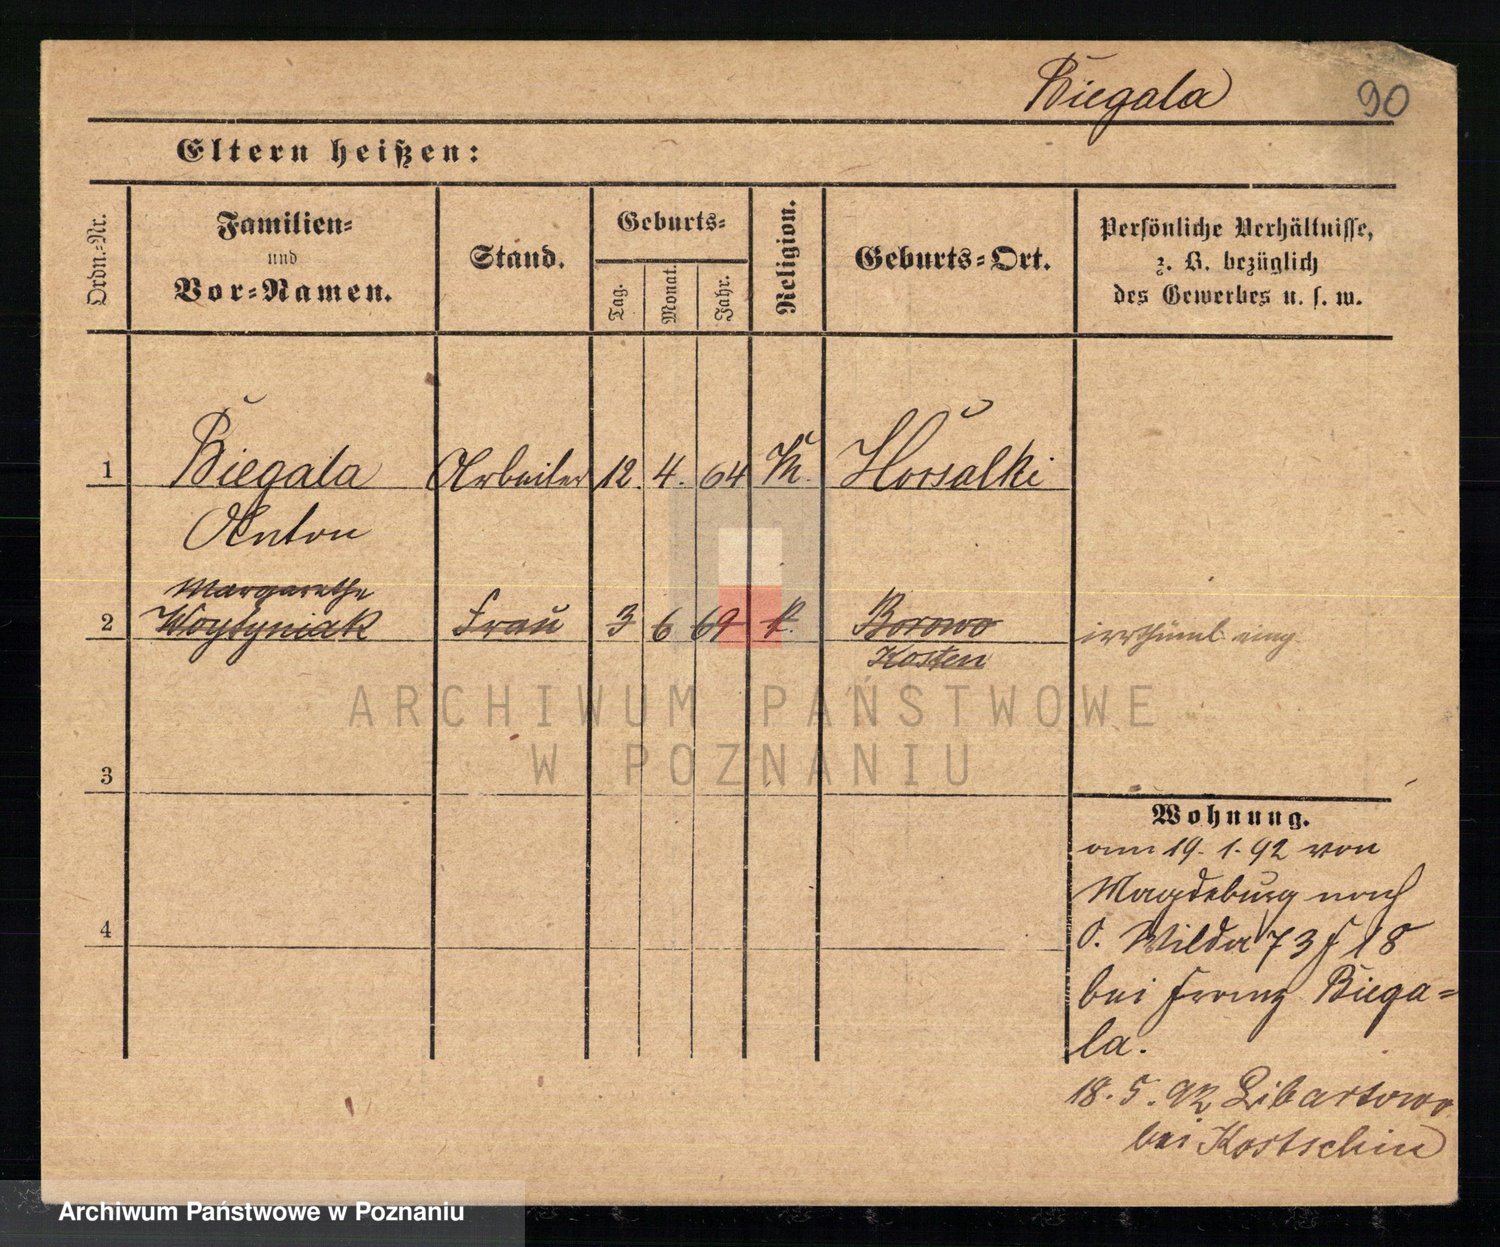 Biegala
90
Eltern heißen:
Ordn.-Nr.
Familien-
und
Vor-Namen.
Stand.
Geburts-
Tag.
Monat.
Jahr.
Religion.
Geburts-Ort.
Persönliche Verhältnisse,
z. B. bezüglich
des Gewerbes u. s. w.
1 Biegala Arbeiter 12. 4. 64 K.
Anton
Margarethe
2 Woytyniak Frau 3 6 69 k. Borowo irrthüml. eing.
Kosten
ARCHIWUM PAŃSTWOWE
W POZNANIU
3
Wohnung.
am 19. 1. 92 von
Magdeburg nach
O. Wilda 73 18
4
bei Franz Biega-
la.
18. 5. 92 Libartowo
bei Kostschin
Archiwum Państwowe w Poznaniu